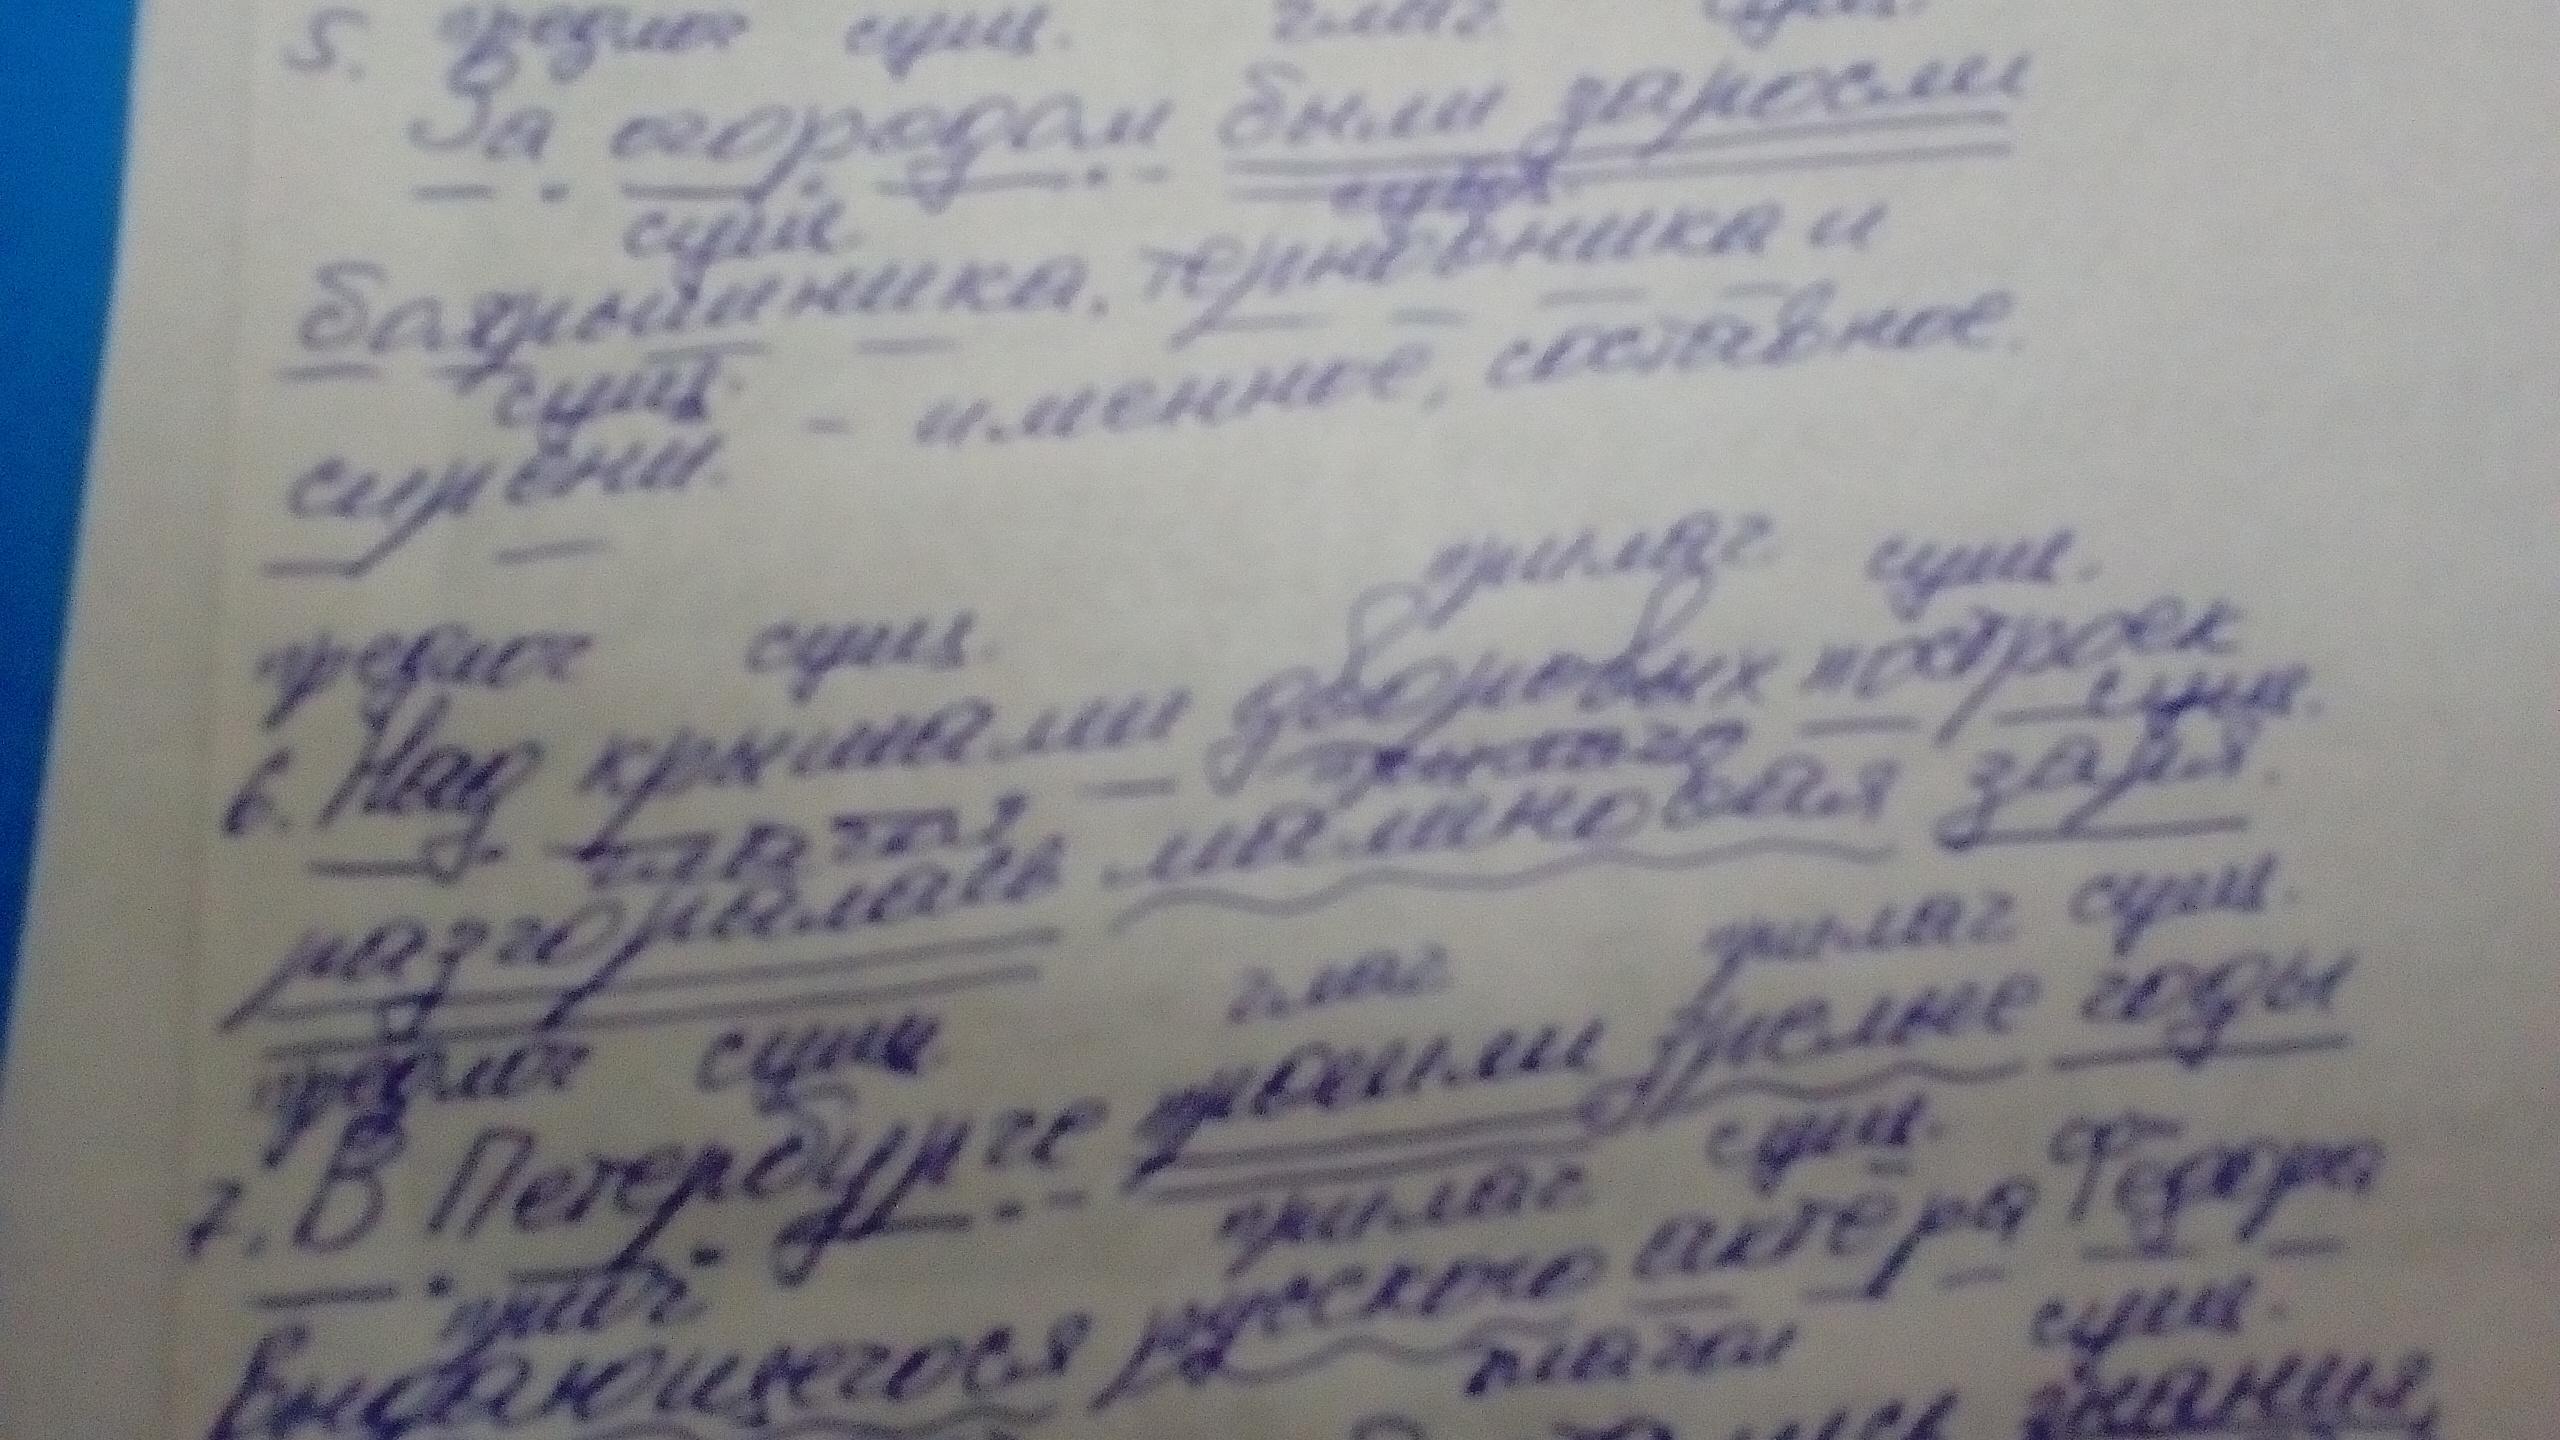 5. предлог сущ. глаг. сущ.
За огородом были заросли
сущ. сущ.
боярышника, терновника и
сущ. - именное, составное.
сирени.
прилаг. сущ.
предлог сущ.
6. Над крышами дворовых построек
глагол прилаг. сущ.
разгоралась малиновая заря.
предлог сущ. глаг. прилаг сущ.
7. В Петербурге прошли зрелые годы
прич. прилаг. сущ.
выдающегося русского актёра Федора
глагол сущ.
знания,